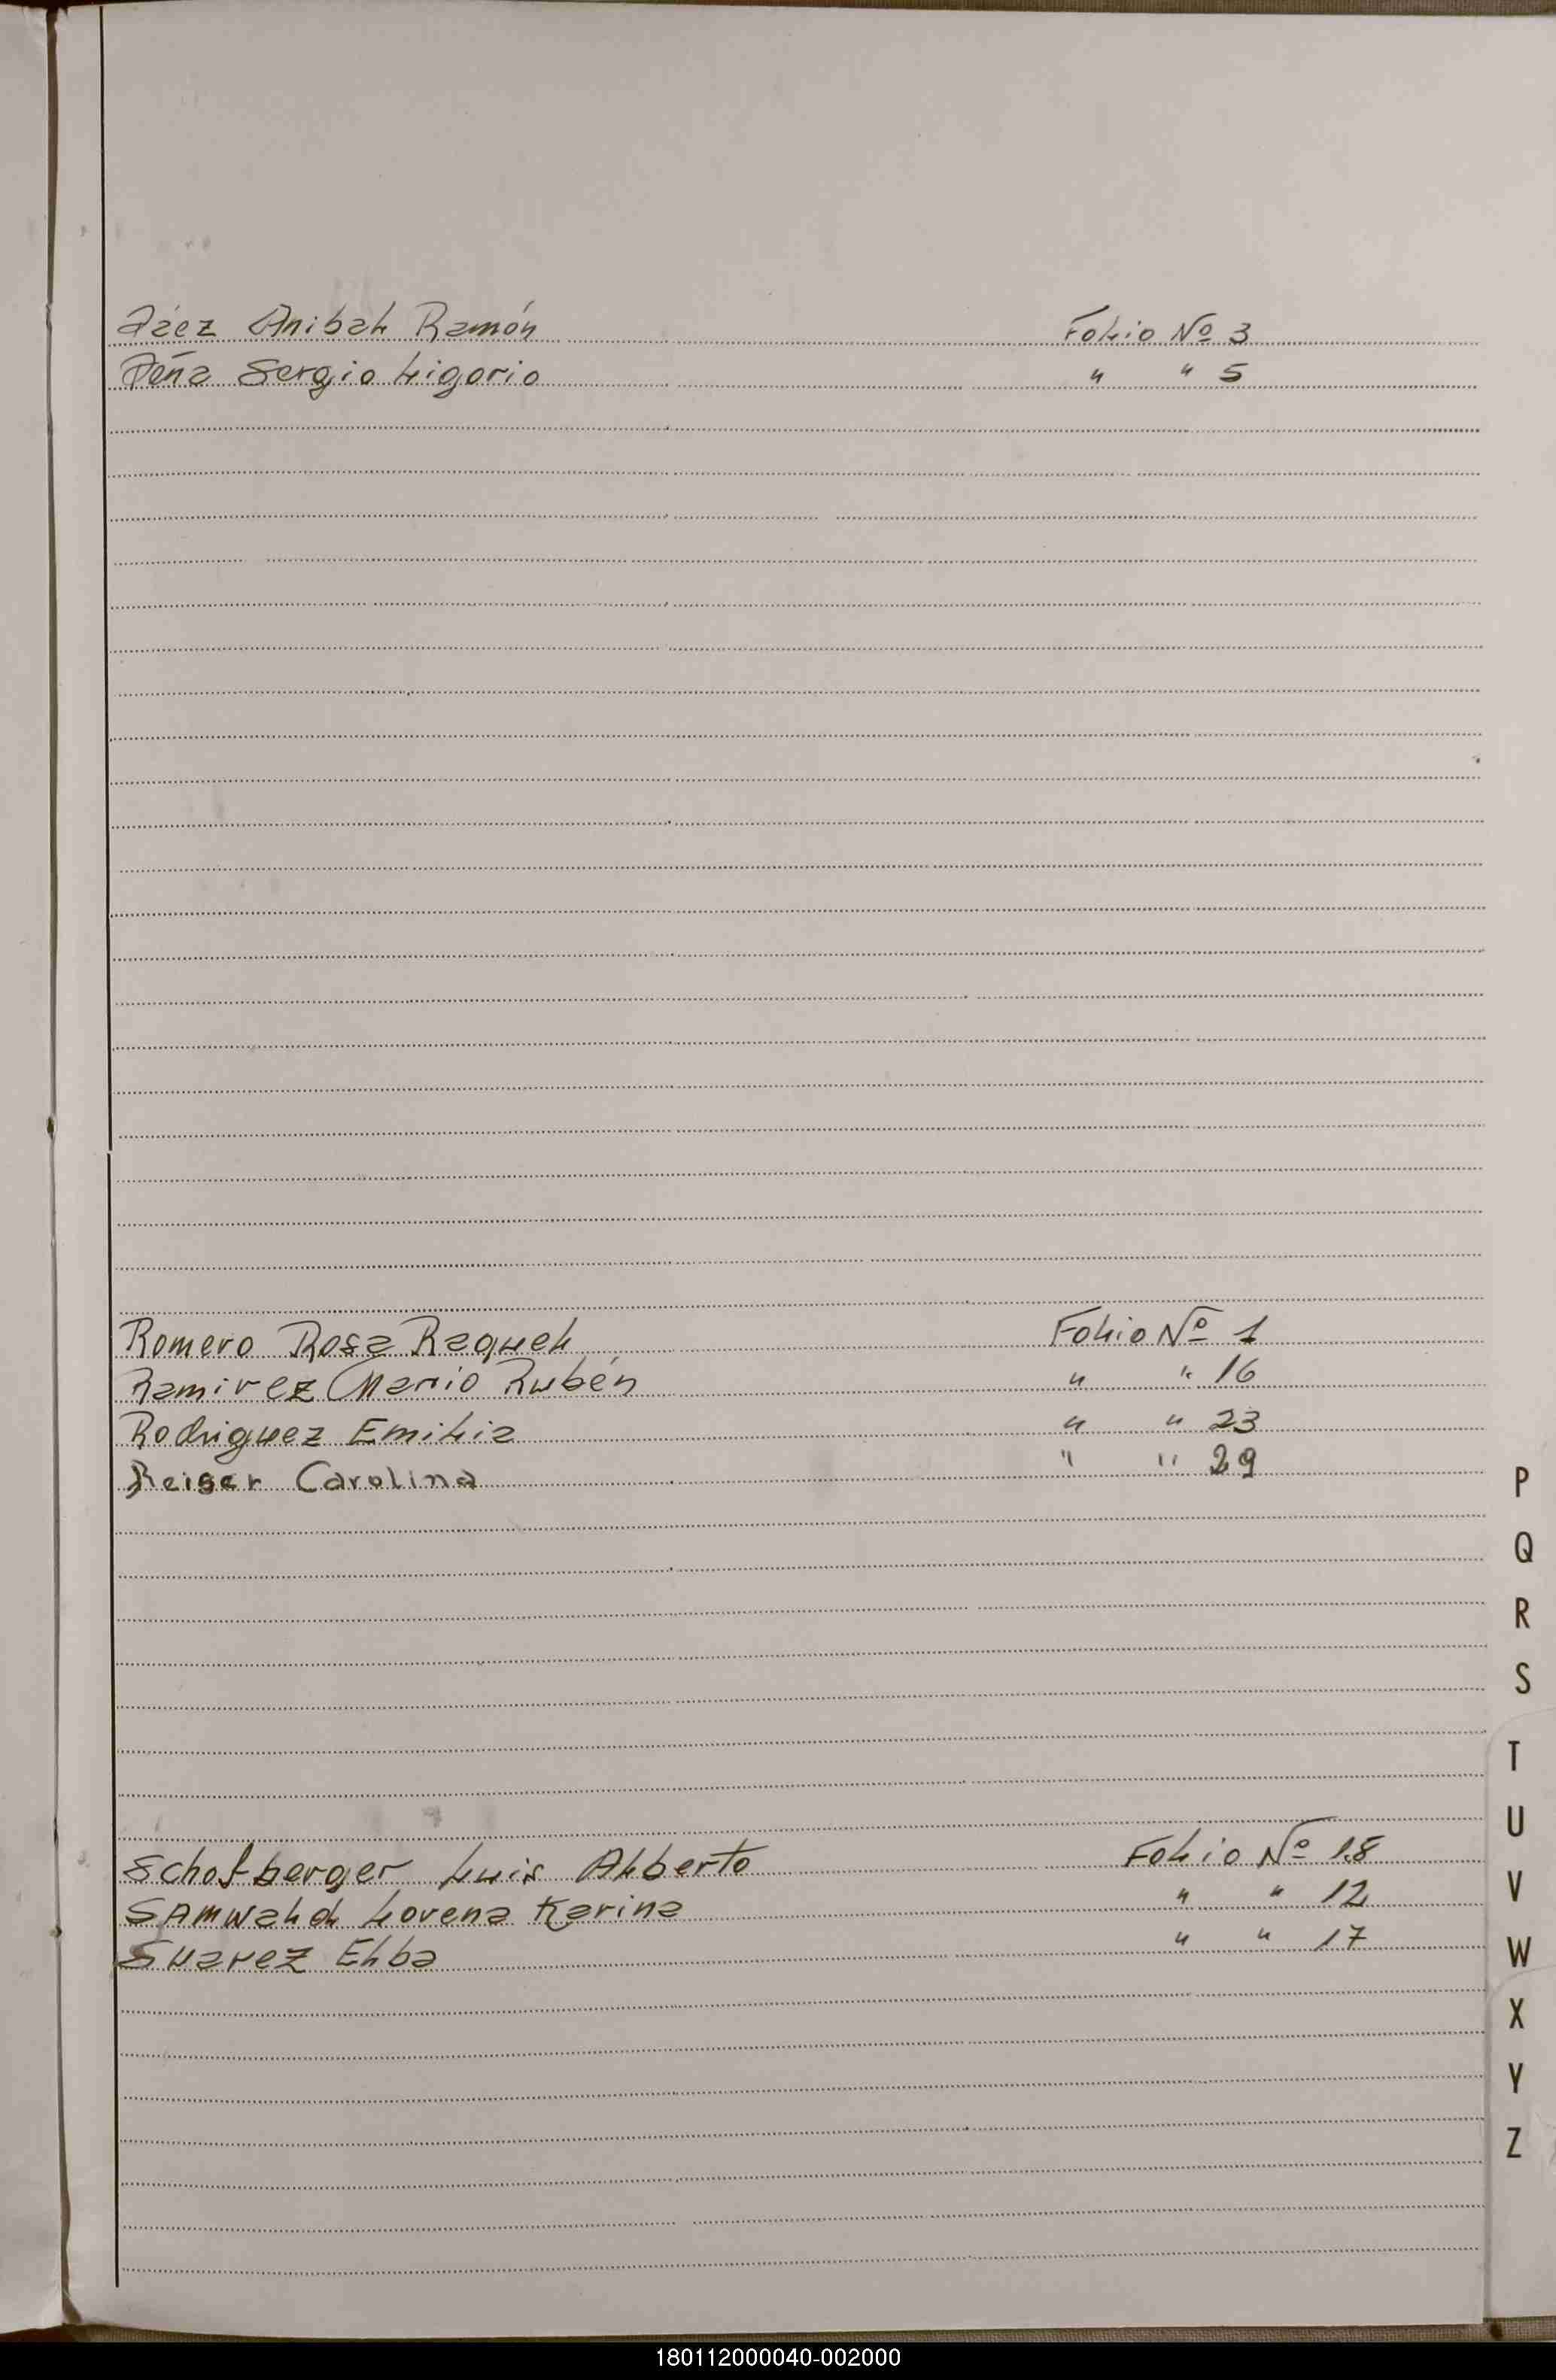 Páez Anibal Ramón Folio Nº 3
Peña Sergio Ligorio " " 5
Romero Rosa Raquel Folio Nº 1
Ramirez Mario Rubén " " 16
Rodriguez Emilia " " 23
Reiser Carolina " " 29
P
Q
R
S
T
U
V
W
X
Y
Z
Schofberger Luis Alberto Folio Nº 18
SAmwald Lorena Karina " " 12
Suarez Elba " " 17
180112000040-002000